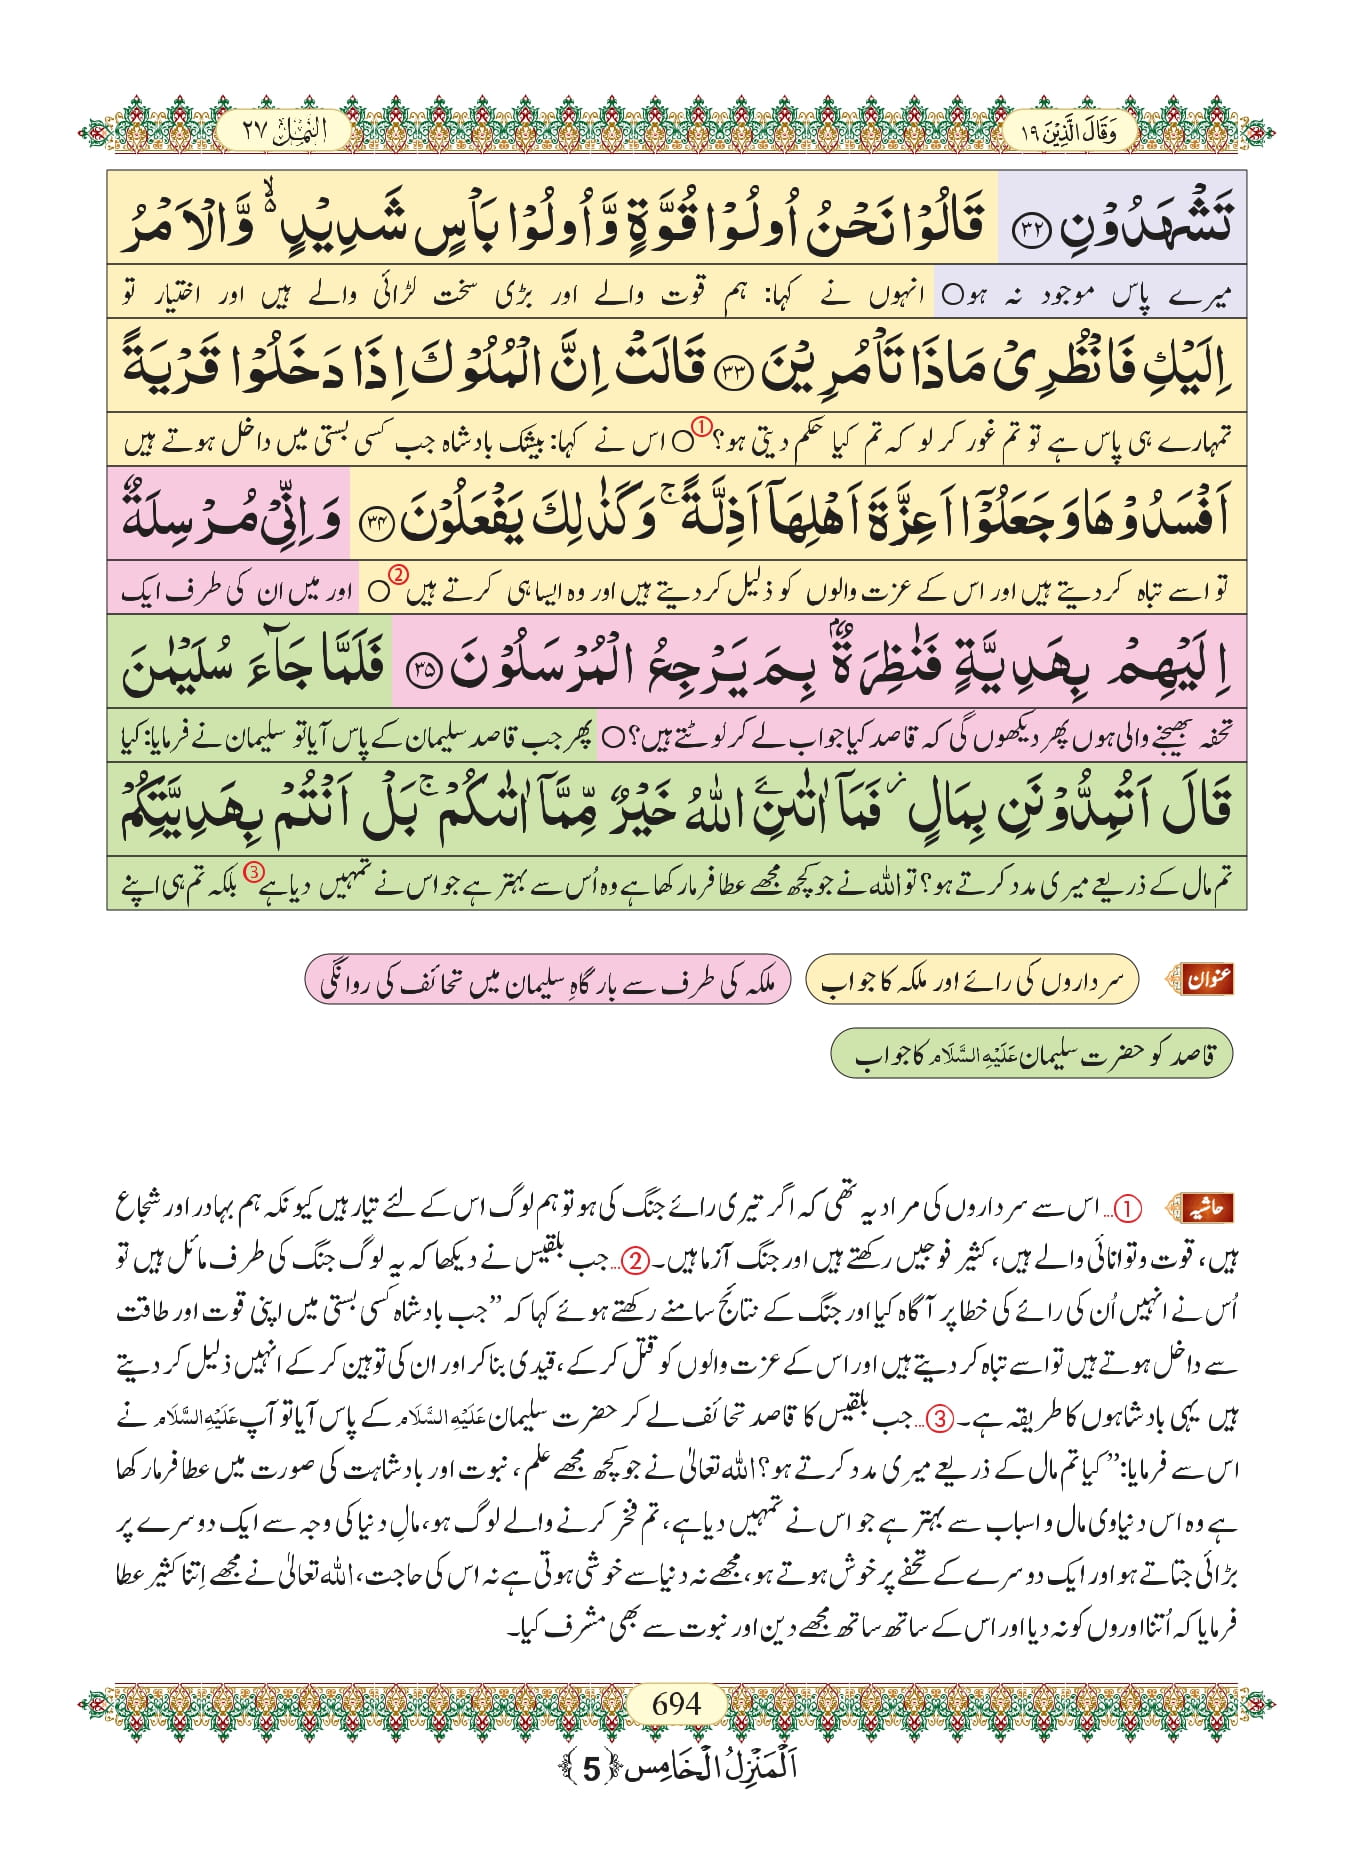 وَقَالَ الَّذِیْنَ ۱۹
النَّمْل ۲۷
تَشْهَدُوْنِ ﴿۳۲﴾ قَالُوْا نَحْنُ اُولُوْا قُوَّةٍ وَّ اُولُوْا بَاْسٍ شَدِیْدٍ ۙ۬ وَّ الْاَمْرُ
میرے پاس موجود نہ ہو○ انہوں نے کہا: ہم قوت والے اور بڑی سخت لڑائی والے ہیں اور اختیار تو
اِلَیْكِ فَانْظُرِیْ مَاذَا تَاْمُرِیْنَ ﴿۳۳﴾ قَالَتْ اِنَّ الْمُلُوْكَ اِذَا دَخَلُوْا قَرْیَةً
تمہارے ہی پاس ہے تو تم غور کر لو کہ تم کیا حکم دیتی ہو؟① ○ اس نے کہا: بیشک بادشاہ جب کسی بستی میں داخل ہوتے ہیں
اَفْسَدُوْهَا وَ جَعَلُوْۤا اَعِزَّةَ اَهْلِهَاۤ اَذِلَّةً ۚ وَ كَذٰلِكَ یَفْعَلُوْنَ ﴿۳۴﴾ وَ اِنِّیْ مُرْسِلَةٌ
تو اسے تباہ کردیتے ہیں اور اس کے عزت والوں کو ذلیل کردیتے ہیں اور وہ ایسا ہی کرتے ہیں② ○ اور میں ان کی طرف ایک
اِلَیْهِمْ بِهَدِیَّةٍ فَنٰظِرَةٌۢ بِمَ یَرْجِعُ الْمُرْسَلُوْنَ ﴿۳۵﴾ فَلَمَّا جَآءَ سُلَیْمٰنَ
تحفہ بھیجنے والی ہوں پھر دیکھوں گی کہ قاصد کیا جواب لے کر لوٹتے ہیں؟○ پھر جب قاصد سلیمان کے پاس آیا تو سلیمان نے فرمایا: کیا
قَالَ اَتُمِدُّوْنَنِ بِمَالٍ ؗ فَمَاۤ اٰتٰىنِۦَ اللّٰهُ خَیْرٌ مِّمَّاۤ اٰتٰىكُمْ ۚ بَلْ اَنْتُمْ بِهَدِیَّتِكُمْ
تم مال کے ذریعے میری مدد کرتے ہو؟ تو اللہ نے جو کچھ مجھے عطا فرما رکھا ہے وہ اُس سے بہتر ہے جو اس نے تمہیں دیا ہے③ بلکہ تم ہی اپنے
عنوان سرداروں کی رائے اور ملکہ کا جواب ملکہ کی طرف سے بارگاہِ سلیمان میں تحائف کی روانگی
قاصد کو حضرت سلیمان عَلَیْهِ السَّلَام کا جواب
حاشیہ ①... اس سے سرداروں کی مراد یہ تھی کہ اگر تیری رائے جنگ کی ہو تو ہم لوگ اس کے لئے تیار ہیں کیونکہ ہم بہادر اور شجاع
ہیں، قوت وتوانائی والے ہیں، کثیر فوجیں رکھتے ہیں اور جنگ آزما ہیں۔ ②... جب بلقیس نے دیکھا کہ یہ لوگ جنگ کی طرف مائل ہیں تو
اُس نے انہیں اُن کی رائے کی خطا پر آگاہ کیا اور جنگ کے نتائج سامنے رکھتے ہوئے کہا کہ ”جب بادشاہ کسی بستی میں اپنی قوت اور طاقت
سے داخل ہوتے ہیں تو اسے تباہ کردیتے ہیں اور اس کے عزت والوں کو قتل کرکے، قیدی بناکر اور ان کی توہین کرکے انہیں ذلیل کردیتے
ہیں یہی بادشاہوں کا طریقہ ہے۔ ③... جب بلقیس کا قاصد تحائف لے کر حضرت سلیمان عَلَیْهِ السَّلَام کے پاس آیا تو آپ عَلَیْهِ السَّلَام نے
اس سے فرمایا: ”کیا تم مال کے ذریعے میری مدد کرتے ہو؟ اللہ تعالیٰ نے جو کچھ مجھے علم، نبوت اور بادشاہت کی صورت میں عطا فرما رکھا
ہے وہ اس دنیاوی مال و اسباب سے بہتر ہے جو اس نے تمہیں دیا ہے، تم فخر کرنے والے لوگ ہو، مالِ دنیا کی وجہ سے ایک دوسرے پر
بڑائی جتاتے ہو اور ایک دوسرے کے تحفے پر خوش ہوتے ہو، مجھے نہ دنیا سے خوشی ہوتی ہے نہ اس کی حاجت، اللہ تعالیٰ نے مجھے اِتنا کثیر عطا
فرمایا کہ اُتنا اوروں کو نہ دیا اور اس کے ساتھ ساتھ مجھے دین اور نبوت سے بھی مشرف کیا۔
694
اَلْمَنْزِلُ الْخَامِس ﴿5﴾